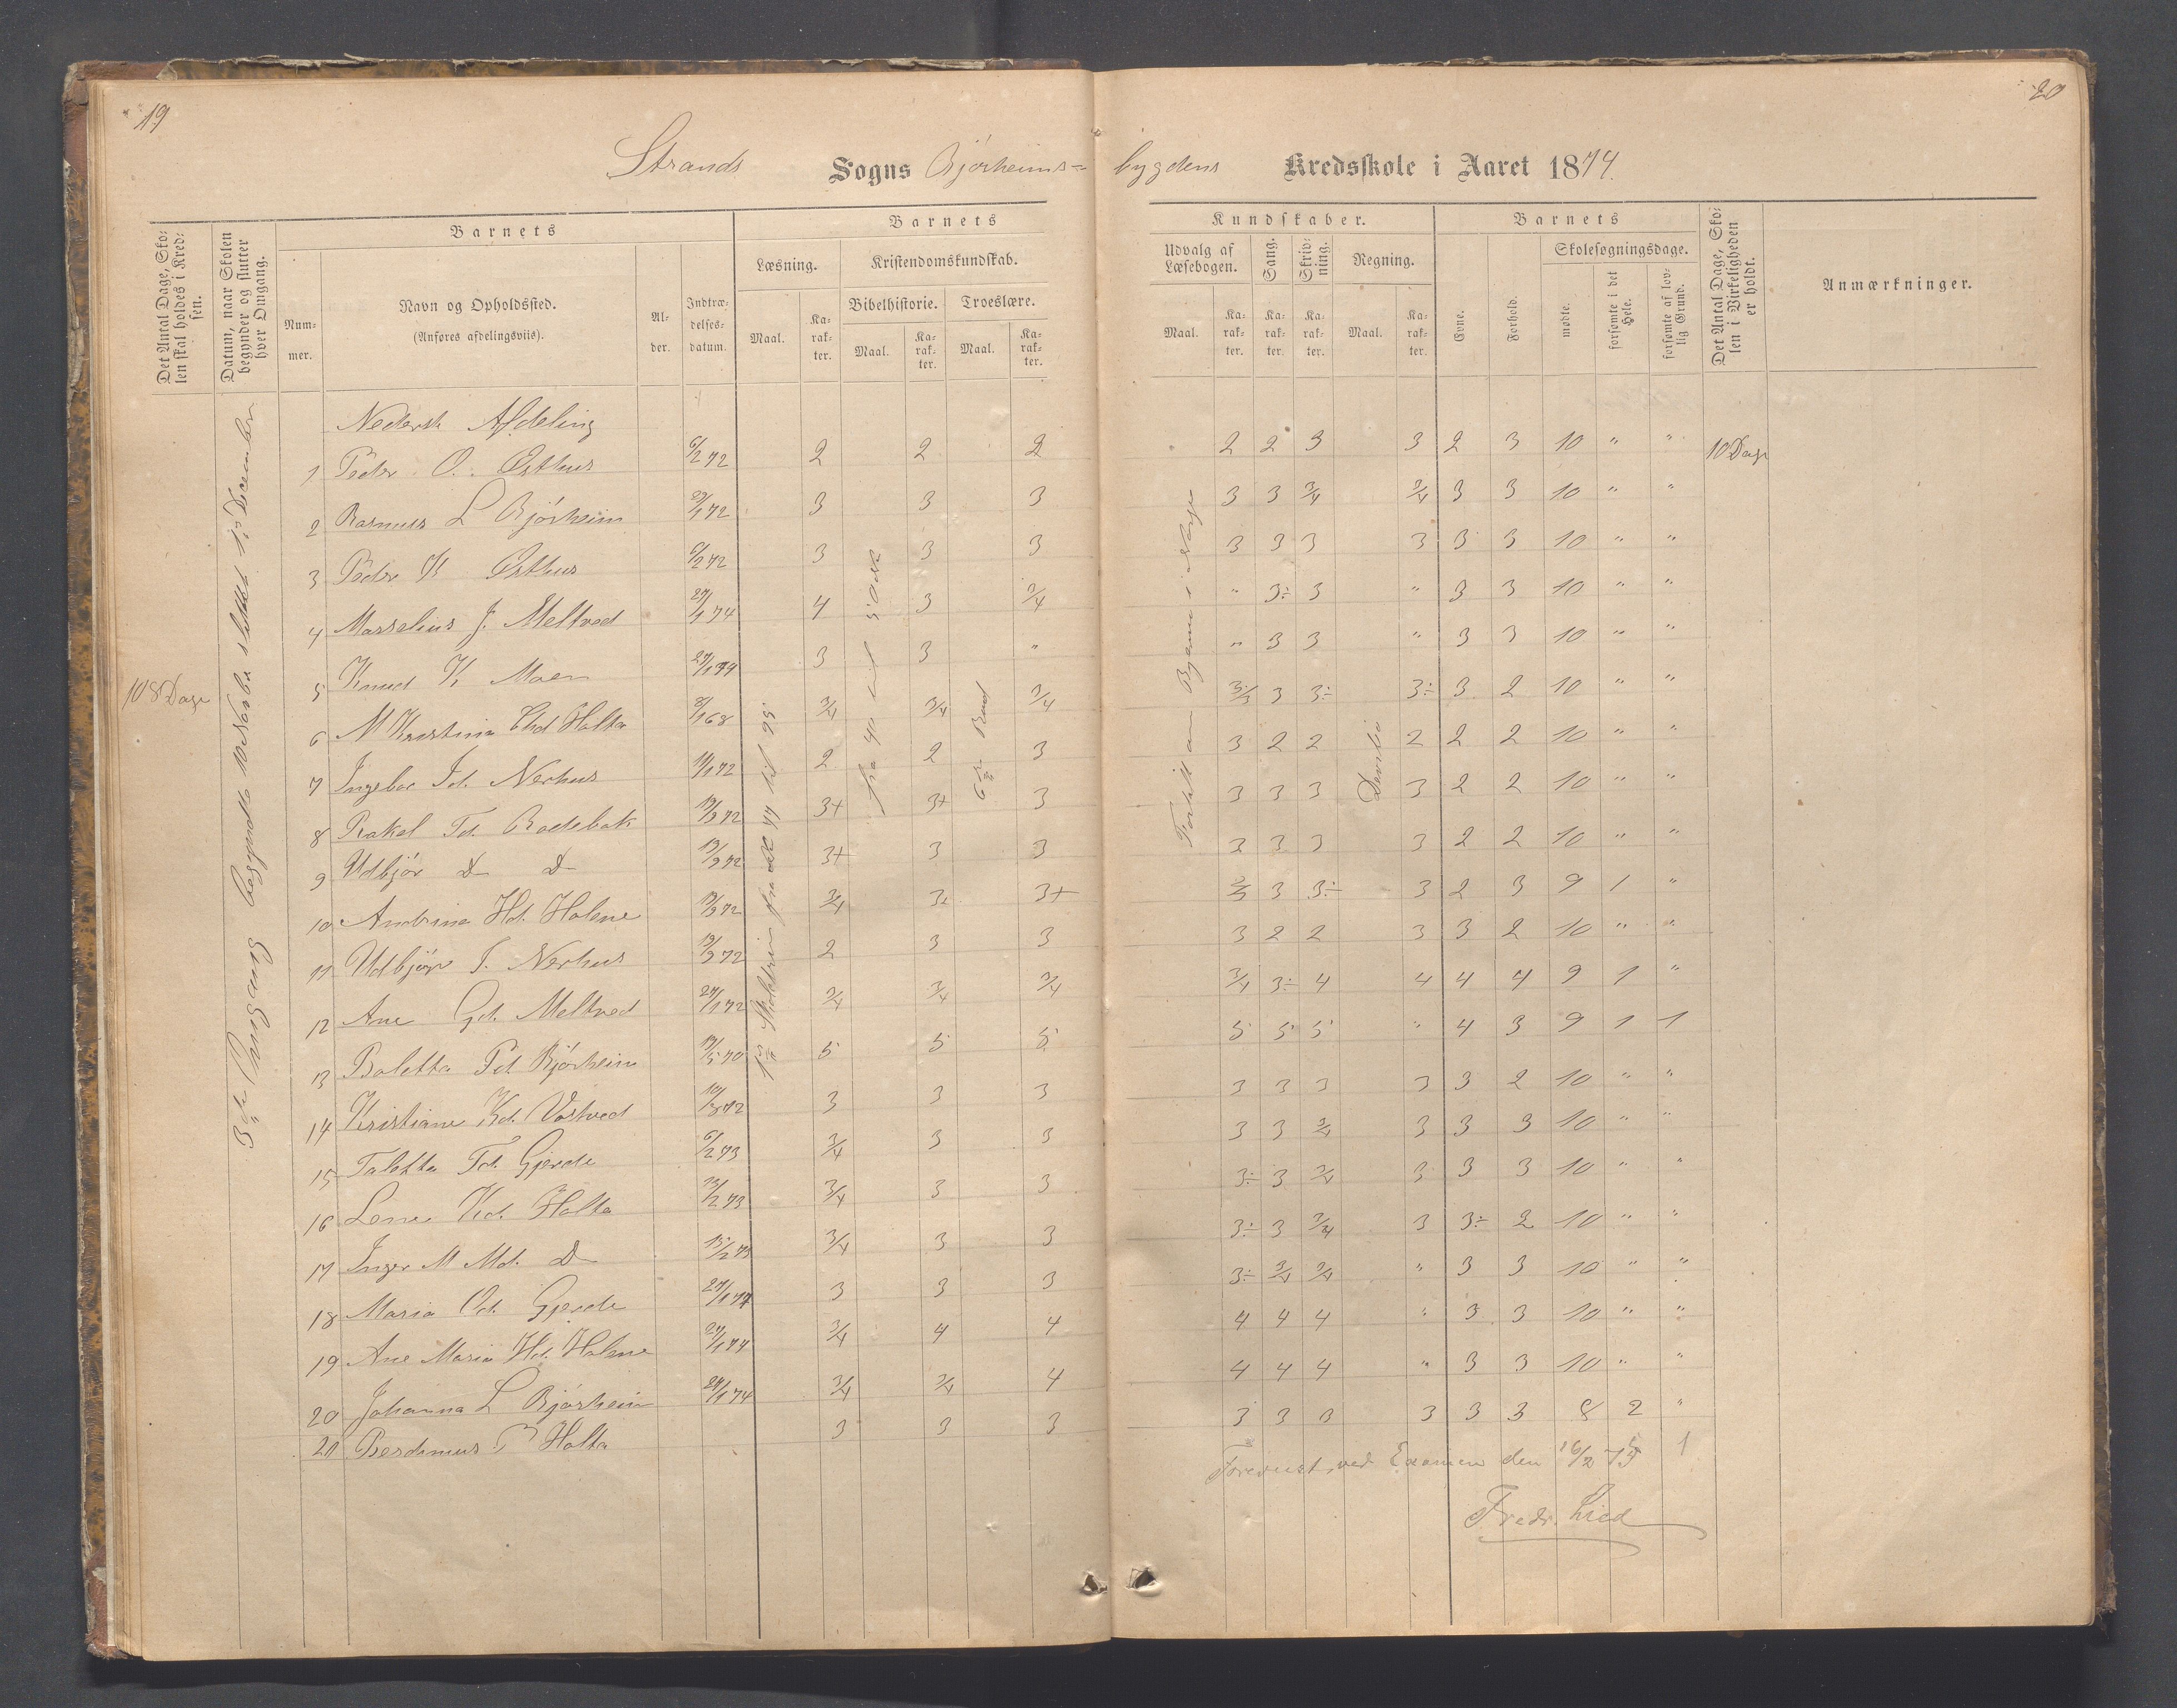 19
20
Strands Sogns Bjørheims=bygdens Kredsskole i Aaret 1874.
Det Antal Dage, Skolen skal holdes i Kredsen.
Datum, naar Skolen begynder og slutter hver Omgang.
Barnets
Nummer.
Navn og Opholdssted.
(Anføres afdelingsviis).
Alder.
Indtrædelsesdatum.
Barnets
Læsning.
Kristendomskundskab.
Bibelhistorie.
Troeslære.
Maal.
Karakter.
Maal.
Karakter.
Maal.
Karakter.
Kundskaber.
Udvalg af Læsebogen.
Sang.
Skrivning.
Regning.
Maal.
Karakter.
Karakter.
Karakter.
Maal.
Karakter.
Barnets
Evne.
Forhold.
Skolesøgningsdage.
mødte.
forsømte i det Hele.
forsømte af lovlig Grund.
Det Antal Dage, Skolen i Virkeligheden er holdt.
Anmærkninger.
108 Dage
Nederste Afdeling
1 Peder O. Østhus 6/2 72 2 2 2 2 2 3 3 2 3 10 " " 10 Dage
2 Rasmus L Bjørheim 29/1 72 3 3 3 3 3 3/4 3/4 3 3 10 " "
3 Peder K Østhus 6/2 72 3 3 3 3 3 3 3 3 3 10 " "
4 Masselius J. Meltved 27/1 74 4 3 3/4 " 3÷ 3 " 3 3 10 " "
5 Knud K Moen 27/1 74 3 3 " " 3 3 " 3 3 10 " "
6 M Kristine Chd Holta 8/1 68 3/4 3/4 3/4 3/4 3 3÷ 3÷ 3 2 10 " "
7 Ingebor Id. Nerhus 11/1 72 2 2 3 3 2 2 2 2 2 10 " "
8 Rakel Td. Bodebak 19/3 72 3+ 3+ 3 3 3 3 3 2 2 10 " "
9 Udbjør D D 19/3 72 3+ 3 3 3 3 3 3 2 2 10 " "
10 Andrina Hd. Holene 19/3 72 3/4 3+ 3+ 3 3÷ 3 2 3 9 1 "
11 Udbjør I. Nerhus 19/3 72 2 3 3 3 2 2 3 3 2 10 " "
12 Ane Gd. Meltved 27/1 72 3/4 3/4 3/4 3/4 3÷ 4 4 4 4 9 1 "
13 Boletta Pd Bjørheim 19/5 70 5 5 5 5 5 5 " 4 3 9 1 1
14 Kristiane Kd. Vostved 10/3 72 3 3 3 3 3 3 3 3 2 10 " "
15 Taletta Td. Gjerde 6/2 73 3/4 3 3 3 3 3/4 3 3 3 10 " "
16 Lene Kd. Holta 13/2 73 3/4 3 3 3÷ 3 3/4 3 3 3 10 " "
17 Inger M Md. D 13/2 73 3/4 3 3 3÷ 3 3/4 3 3÷ 2 10 " "
18 Maria Od. Gjerde 27/1 74 3 3 3 3÷ 3/4 3/4 " 3 3 10 " "
19 Ane Maria Hd. Holene 27/1 74 3/4 4 4 4 4 4 " 3 3 10 " "
20 Johanna L Bjørheim 27/1 74 3/4 3/4 4 4 4 4 " 3 3 10 " "
21 Berdinus P Holta 3 3 3 3 3 3 3 3 3 8 2 "
Forevist ved Examen den 16/2 75
1
Fredr. Lied